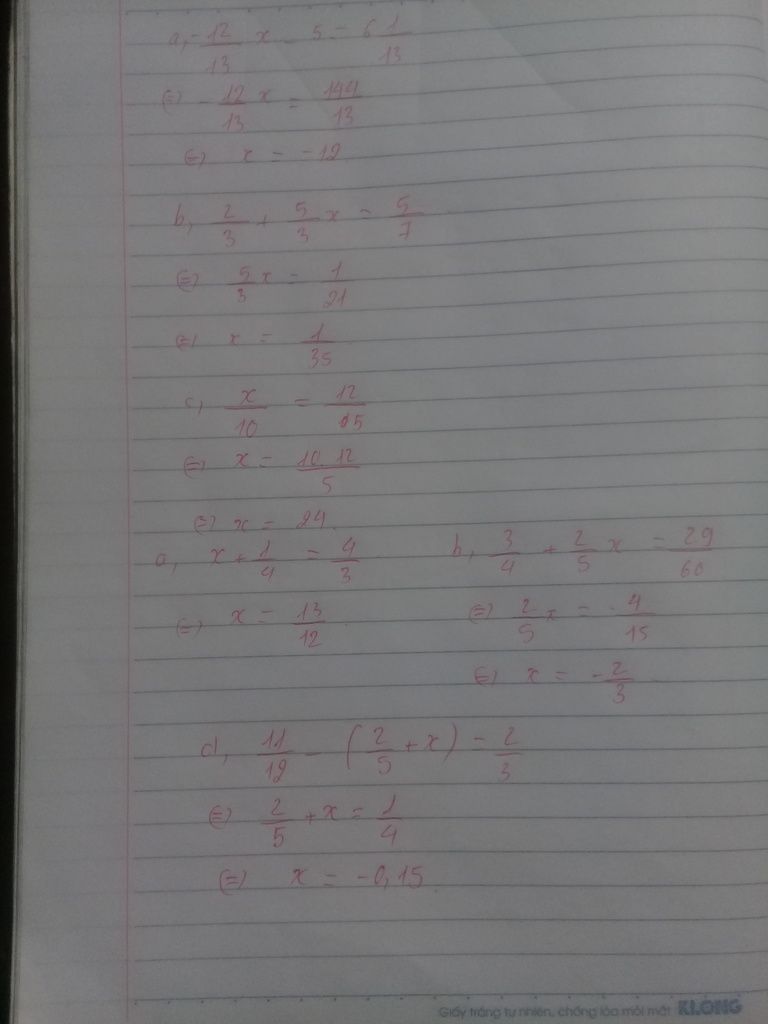 a, -12/13 x - 5 = 6 1/13
(=) -12/13 x = 144/13
(=) x = -12
b, 2/3 + 5/3 x = 5/7
(=) 5/3 x = 1/21
(=) x = 1/35
c, x/10 = 12/15
(=) x = 10.12/5
(=) x = 24
a, x + 1/4 = 4/3
(=) x = 13/12
b, 3/4 + 2/5 x = 29/60
(=) 2/5 x = -4/15
(=) x = -2/3
d, 11/12 - (2/5 + x) = 2/3
(=) 2/5 + x = 1/4
(=) x = -0,15
Giấy trắng tự nhiên, chống lóa mỏi mắt KLONG